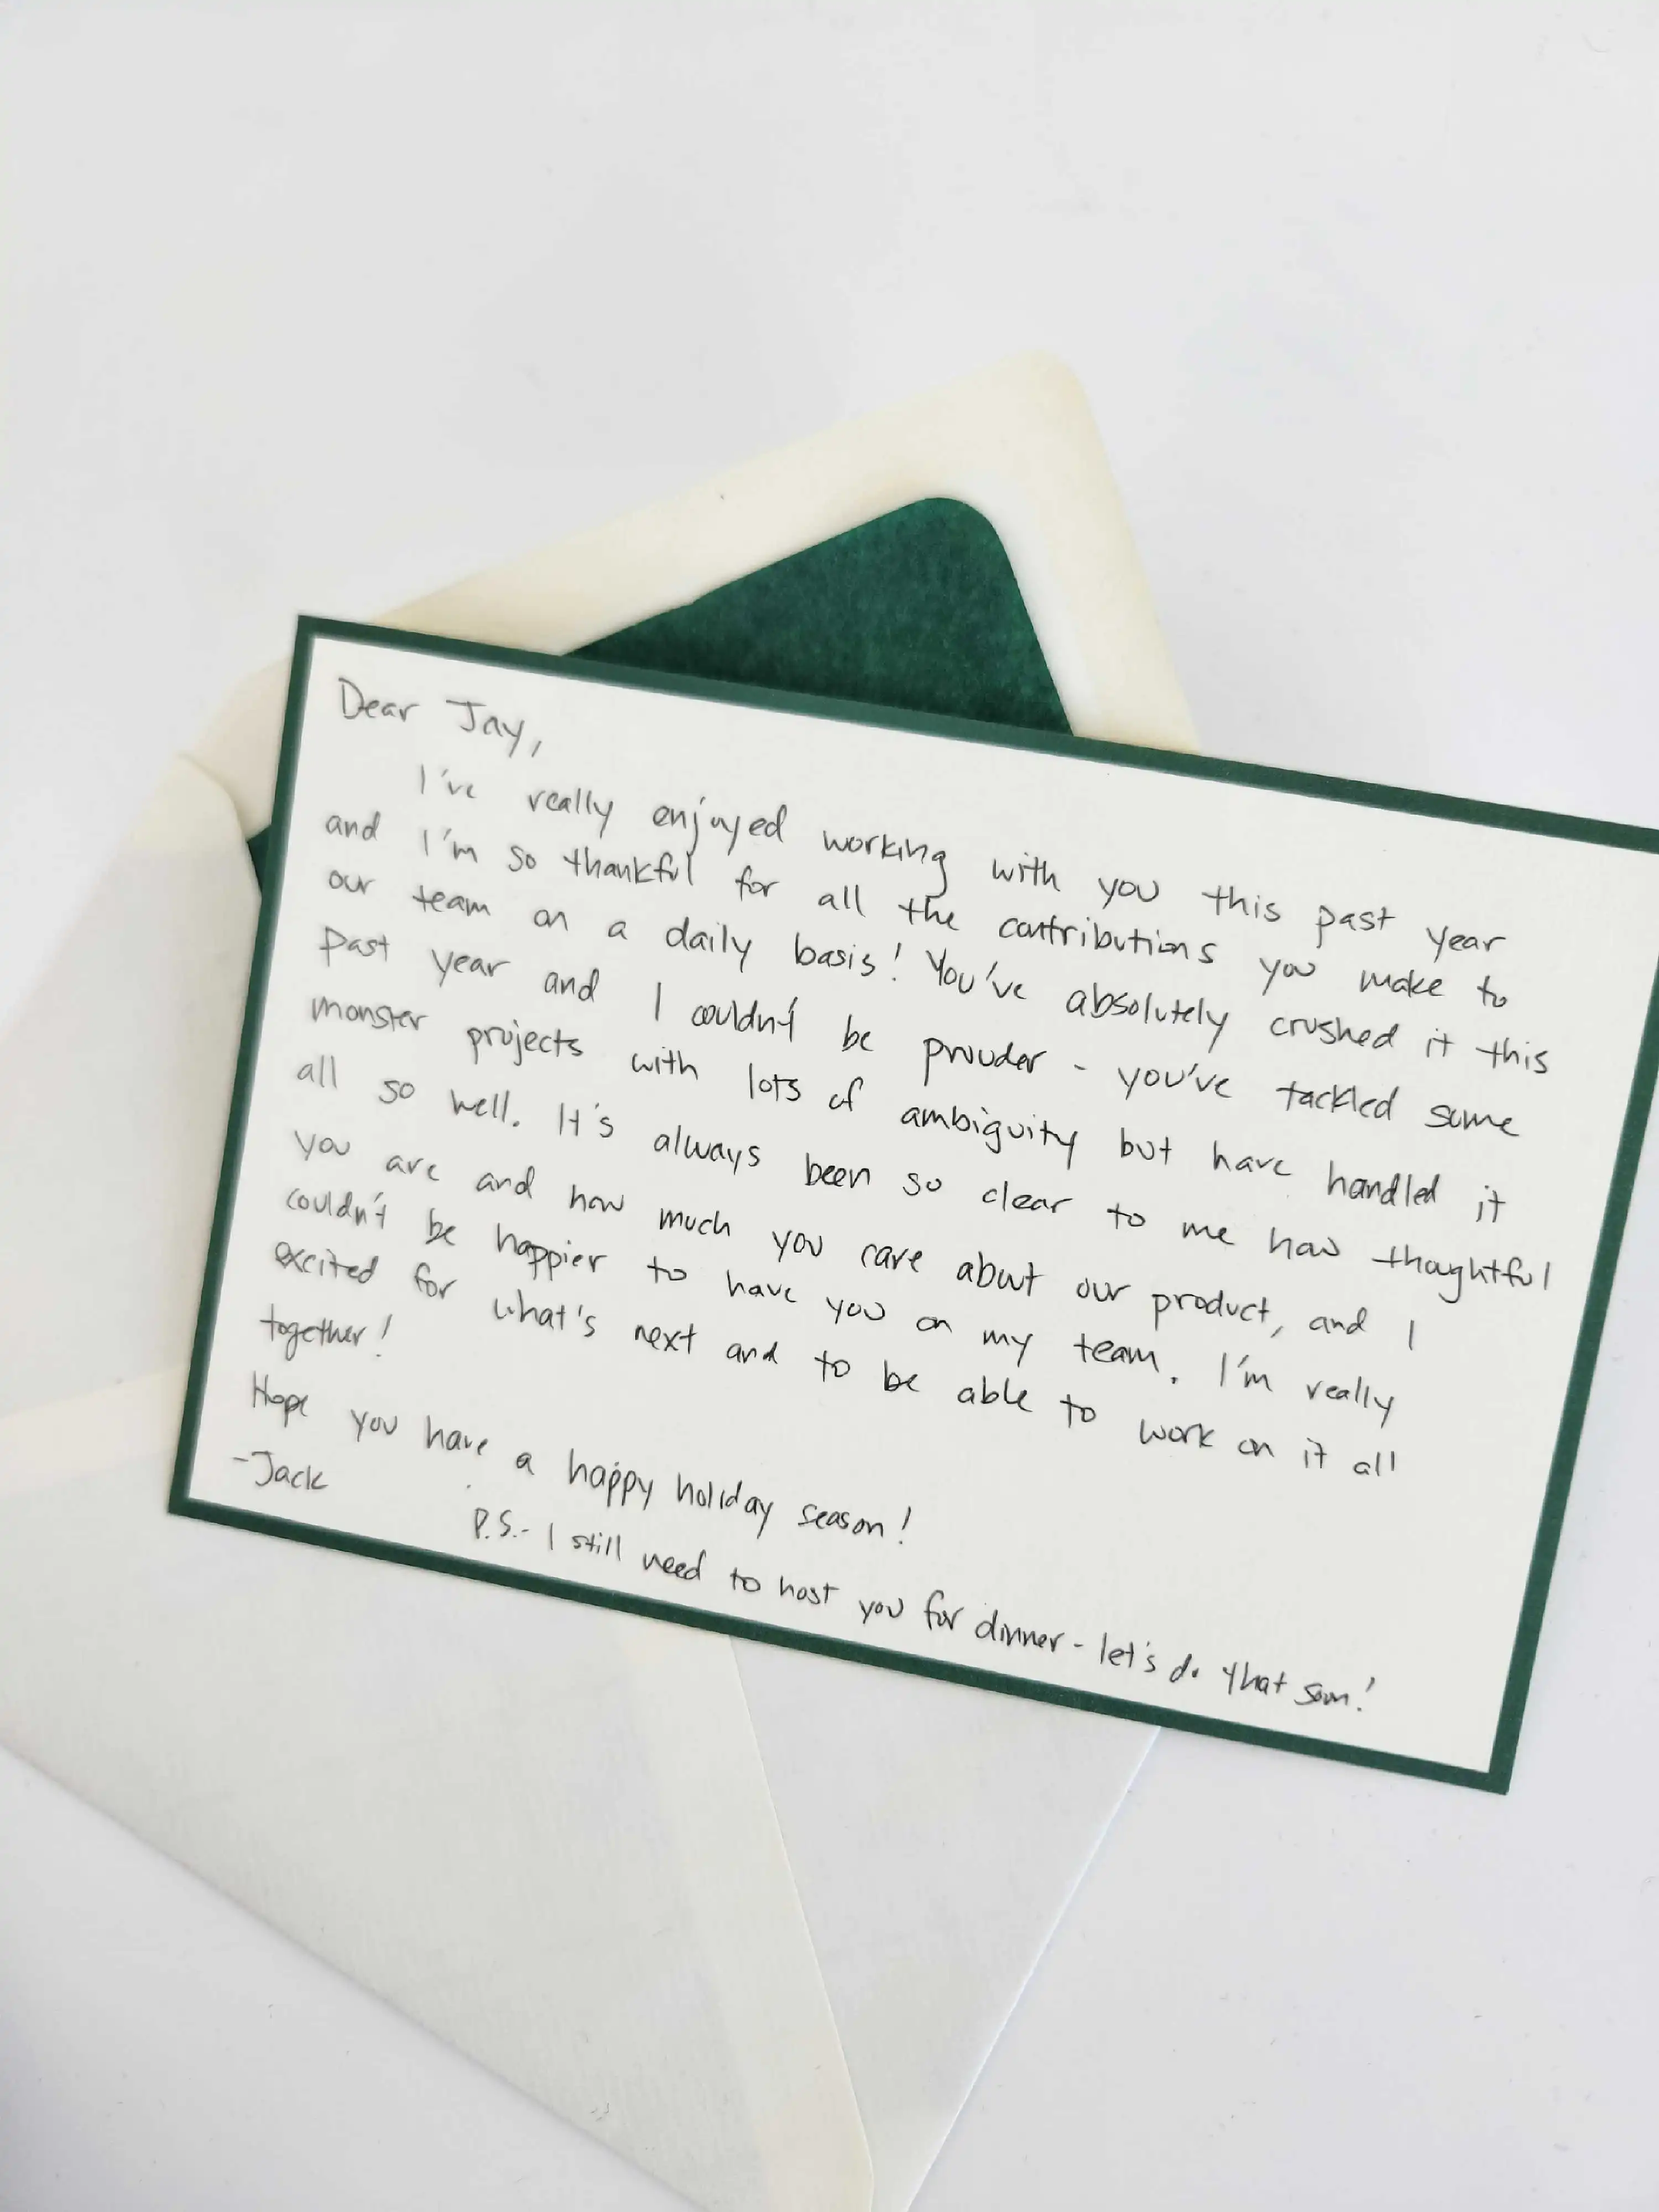 Dear Jay,
I've really enjoyed working with you this past year
and I'm so thankful for all the contributions you make to
our team on a daily basis! You've absolutely crushed it this
past year and I couldn't be prouder - you've tackled some
monster projects with lots of ambiguity but have handled it
all so well. It's always been so clear to me how thoughtful
you are and how much you care about our product, and I
couldn't be happier to have you on my team. I'm really
excited for what's next and to be able to work on it all
together!
Hope you have a happy holiday season!
-Jack
P.S.- I still need to host you for dinner - let's do that soon!